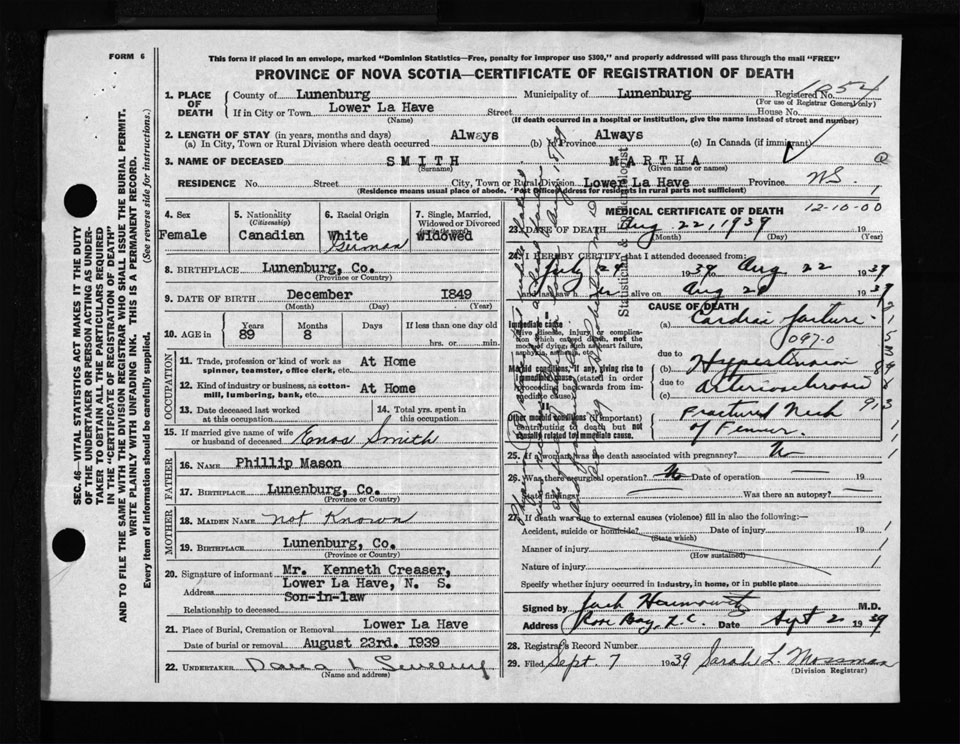 FORM 6
This form if placed in an envelope, marked "Dominion Statistics—Free, penalty for improper use $300," and properly addressed will pass through the mail "FREE"
PROVINCE OF NOVA SCOTIA—CERTIFICATE OF REGISTRATION OF DEATH
SEC. 46—VITAL STATISTICS ACT MAKES IT THE DUTY
OF THE UNDERTAKER OR PERSON ACTING AS UNDER-
TAKER TO OBTAIN ALL THE PARTICULARS REQUIRED
IN THE "CERTIFICATE OF REGISTRATION OF DEATH"
AND TO FILE THE SAME WITH THE DIVISION REGISTRAR WHO SHALL ISSUE THE BURIAL PERMIT.
WRITE PLAINLY WITH UNFADING INK. THIS IS A PERMANENT RECORD.
Every item of information should be carefully supplied. (See reverse side for instructions.)
1. PLACE OF DEATH County of Lunenburg Municipality of Lunenburg Registered No.
(For use of Registrar General only)
If in City or Town Lower La Have Street House No.
(Name) (If death occurred in a hospital or institution, give the name instead of street and number)
2. LENGTH OF STAY (in years, months and days)
(a) In City, Town or Rural Division where death occurred Always (b) In Province Always (c) In Canada (if immigrant)
3. NAME OF DECEASED SMITH MARTHA
(Surname) (Given name or names)
RESIDENCE No. Street City, Town or Rural Division Lower La Have Province N.S.
(Residence means usual place of abode. Post Office Address for residents in rural parts not sufficient)
4. Sex Female
5. Nationality (Citizenship) Canadian
6. Racial Origin White German
7. Single, Married, Widowed or Divorced Widowed
8. BIRTHPLACE Lunenburg, Co.
(Province or Country)
9. DATE OF BIRTH December 1849
(Month) (Day) (Year)
10. AGE in Years 89 Months 8 Days If less than one day old
hrs. or min.
OCCUPATION
11. Trade, profession or kind of work as spinner, teamster, office clerk, etc. At Home
12. Kind of industry or business, as cotton-mill, lumbering, bank, etc. At Home
13. Date deceased last worked at this occupation
14. Total yrs. spent in this occupation
15. If married give name of wife or husband of deceased Enos Smith
FATHER
16. NAME Phillip Mason
17. BIRTHPLACE Lunenburg, Co.
(Province or Country)
MOTHER
18. MAIDEN NAME Not Known
19. BIRTHPLACE Lunenburg, Co.
(Province or Country)
20. Signature of informant Mr. Kenneth Creaser,
Address Lower La Have, N. S.
Relationship to deceased Son-in-law
21. Place of Burial, Cremation or Removal Lower La Have
Date of burial or removal August 23rd. 1939
22. UNDERTAKER
(Name and address)
MEDICAL CERTIFICATE OF DEATH
12-10-00
23. DATE OF DEATH Aug 22, 1939
(Month) (Day)
24. I HEREBY CERTIFY, that I attended deceased from:
July 29 1939 Aug 22 1939
alive on Aug 1939
CAUSE OF DEATH
Immediate cause
Give disease, injury or complication which caused death, not the mode of dying, such as heart failure, asphyxia, asthenia, etc.
(a) Cardiac failure
097-0
Morbid conditions, if any, giving rise to immediate cause (stated in order proceeding backwards from immediate cause)
due to
(b)
due to
(c)
Other morbid conditions (if important) contributing to death but not causally related to immediate cause.
Fractured Neck
of Femur.
25. If a woman, was the death associated with pregnancy? No
26. Was there surgical operation? No Date of operation 19
State findings Was there an autopsy?
27. If death was due to external causes (violence) fill in also the following:—
Accident, suicide or homicide? Date of injury 19
(State which)
Manner of injury
(How sustained)
Nature of injury
Specify whether injury occurred in industry, in home, or in public place
Signed by Jack M.D.
Address Rose Bay, L. C. Date Sept 2 1939
28. Registrar's Record Number
29. Filed Sept. 7 1939 Sarah L. Mossman
(Division Registrar)